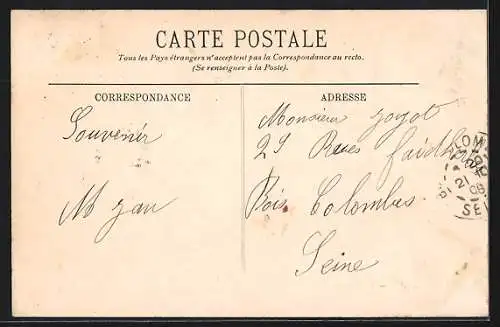 CARTE POSTALE
Tous les Pays étrangers n'acceptent pas la Correspondance au recto.
(Se renseigner à la Poste).
CORRESPONDANCE
ADRESSE
Souvenir
Monsieur
29 Rues
Bois Colombes
Seine
LOM
21
08
SE